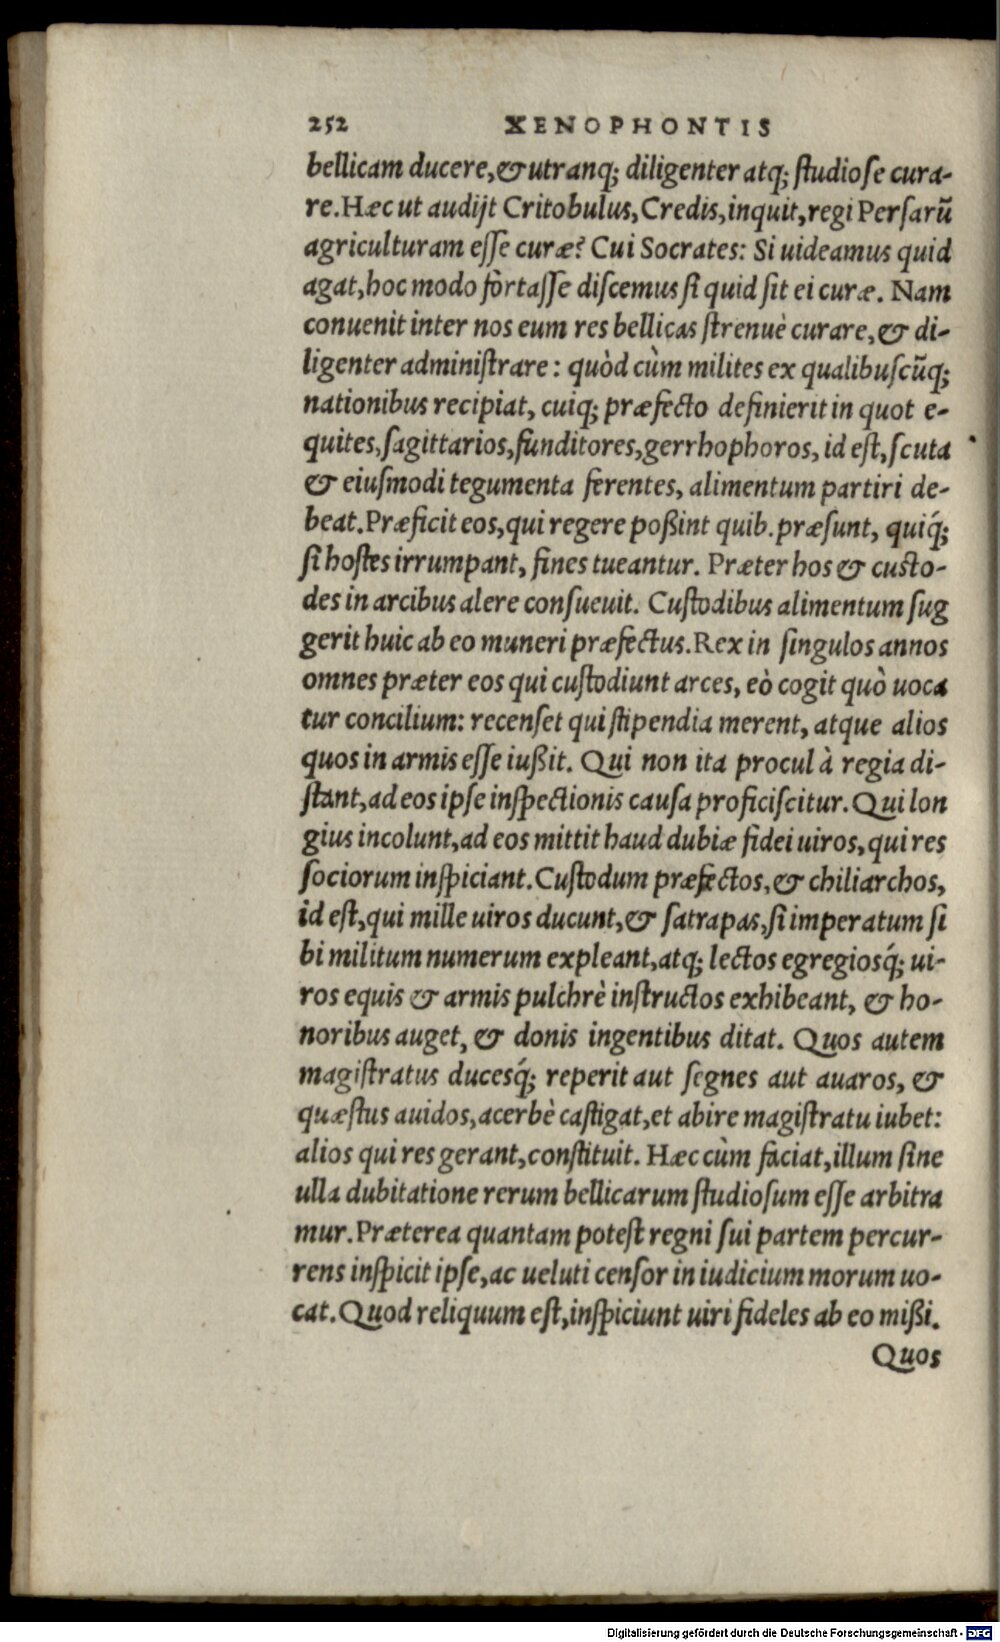 252 XENOPHONTIS
bellicam ducere, & utranq; diligenter atq; ſtudioſe cura-
re. Hæc ut audijt Critobulus, Credis, inquit, regi Perſarũ
agriculturam eſſe curæ? Cui Socrates: Si uideamus quid
agat, hoc modo fortaſſe diſcemus ſi quid ſit ei curæ. Nam
conuenit inter nos eum res bellicas ſtrenuè curare, & di-
ligenter adminiſtrare: quòd cùm milites ex qualibuſcũq;
nationibus recipiat, cuiq; præfecto definierit in quot e-
quites, ſagittarios, funditores, gerrhophoros, id eſt, ſcuta
& eiuſmodi tegumenta ferentes, alimentum partiri de-
beat. Præficit eos, qui regere poßint quib. præſunt, quiq́;
ſi hoſtes irrumpant, fines tueantur. Præter hos & cuſto-
des in arcibus alere conſueuit. Cuſtodibus alimentum ſug
gerit huic ab eo muneri præfectus. Rex in ſingulos annos
omnes præter eos qui cuſtodiunt arces, eò cogit quò uoca
tur concilium: recenſet qui ſtipendia merent, atque alios
quos in armis eſſe iußit. Qui non ita procul à regia di-
ſtant, ad eos ipſe inſpectionis cauſa proficiſcitur. Qui lon
gius incolunt, ad eos mittit haud dubiæ fidei uiros, qui res
ſociorum inſpiciant. Cuſtodum præfectos, & chiliarchos,
id eſt, qui mille uiros ducunt, & ſatrapas, ſi imperatum ſi
bi militum numerum expleant, atq; lectos egregiosq́; ui-
ros equis & armis pulchrè inſtructos exhibeant, & ho-
noribus auget, & donis ingentibus ditat. Quos autem
magiſtratus ducesq́; reperit aut ſegnes aut auaros, &
quæſtus auidos, acerbè caſtigat, et abire magiſtratu iubet:
alios qui res gerant, conſtituit. Hæc cùm faciat, illum ſine
ulla dubitatione rerum bellicarum ſtudioſum eſſe arbitra
mur. Præterea quantam poteſt regni ſui partem percur-
rens inſpicit ipſe, ac ueluti cenſor in iudicium morum uo-
cat. Quod reliquum eſt, inſpiciunt uiri fideles ab eo mißi.
Quos
Digitalisierung gefördert durch die Deutsche Forschungsgemeinschaft - DFG